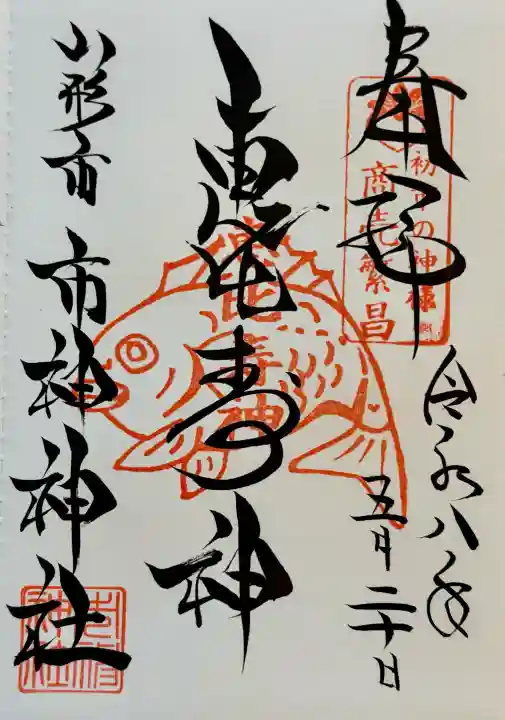 奉拝
初市の神様
商売繁昌
令和八年
五月二十日
恵比寿神
恵比寿神
山形市 市神神社
市神神社